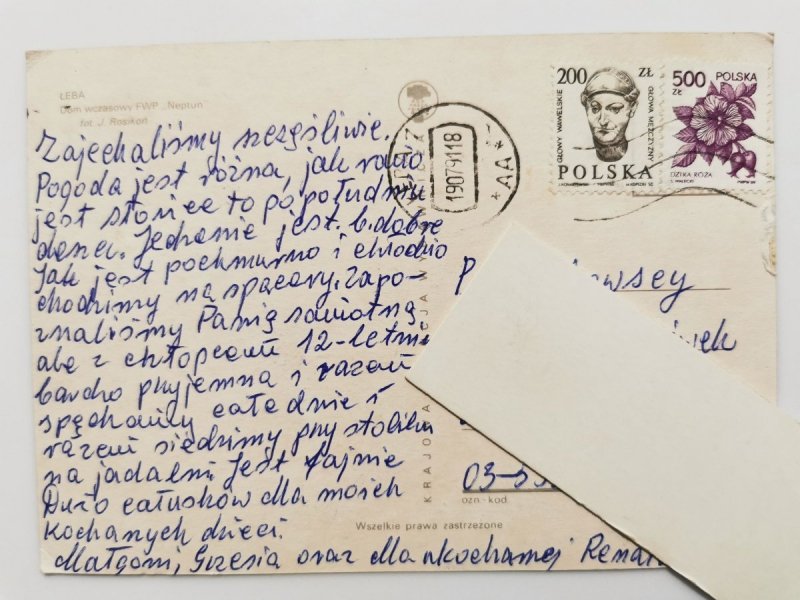 ŁEBA
Dom wczasowy FWP „Neptun"
fot. J. Rosikoń
Zajechaliśmy szczęśliwie.
Pogoda jest różna, jak rano
jest słońce to po południu
deszcz. Jedzenie jest b. dobre
Jak jest pochmurno i chłodno
chodzimy na spacery. Zapo-
znaliśmy Panią samotną
ale z chłopcem 12-letnim
bardzo przyjemna i razem
spędzamy całe dnie i
razem siedzimy przy stoliku
na jadalni Jest fajnie
Dużo całusków dla moich
Kochanych dzieci.
Małgoni, Grzesia oraz dla ukochanej Renat
200 ZŁ
GŁOWY WAWELSKIE
GŁOWA MĘŻCZYZNY
POLSKA
500 ZŁ
POLSKA
DZIKA RÓŻA
19079118
*AA*
KRAJOWA
03-
ozn.-kod.
Wszelkie prawa zastrzeżone